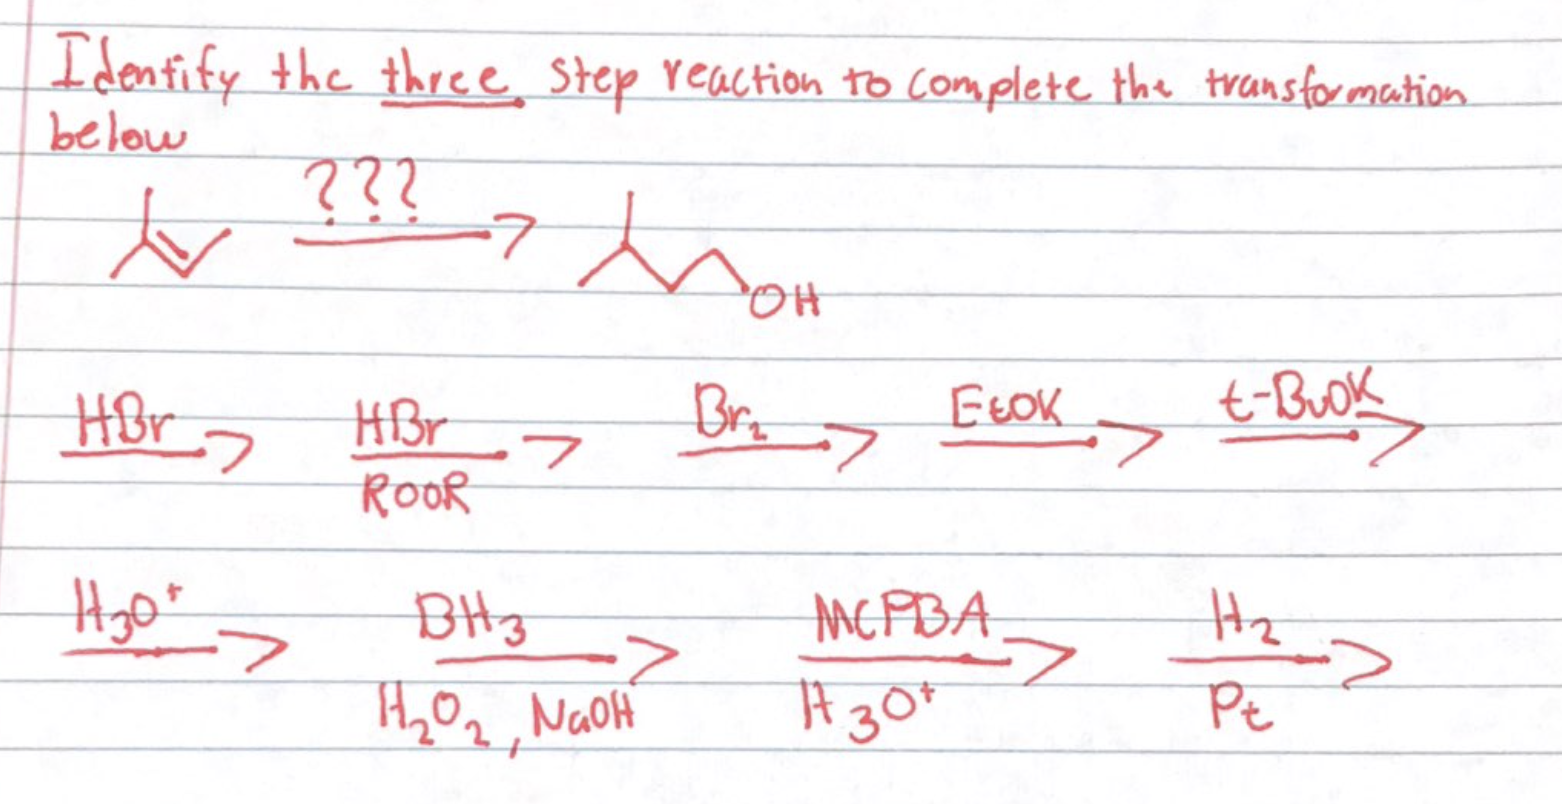 Identify the three step reaction to complete the transformation
below
???
OH
HBr HBr Br₂ EtOK t-BuOK
ROOR
H₃O⁺ BH₃ MCPBA H₂
H₂O₂, NaOH H₃O⁺ Pt